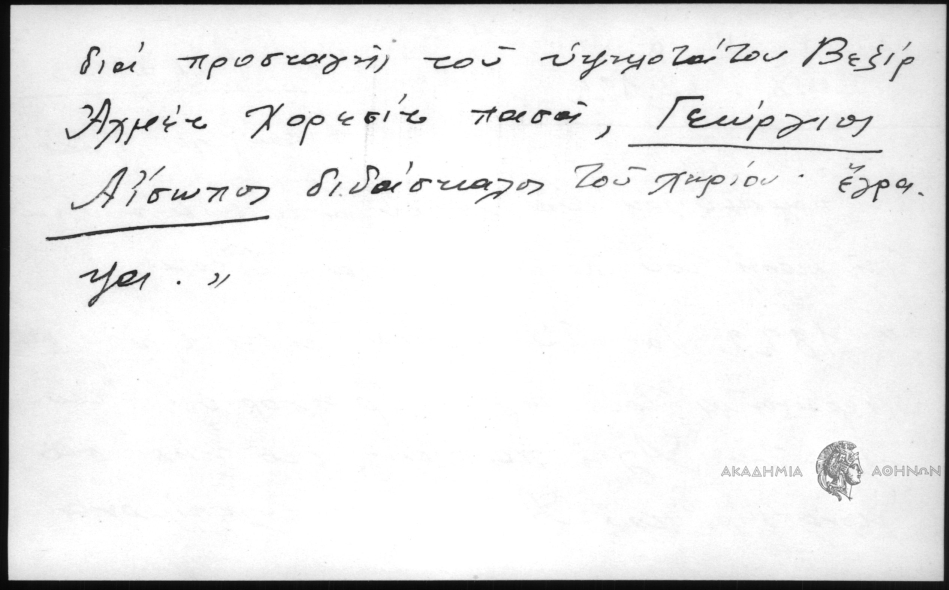 διά προσταγῆς τοῦ ὑψηλοτάτου Βεζίρ
Ἀχμὲτ Χορσὶτ πασᾶ, Γεώργιος
Αἴσωπος διδάσκαλος τοῦ χωρίου. ἔγρα-
ψα. »
ΑΚΑΔΗΜΙΑ ΑΘΗΝΩΝ